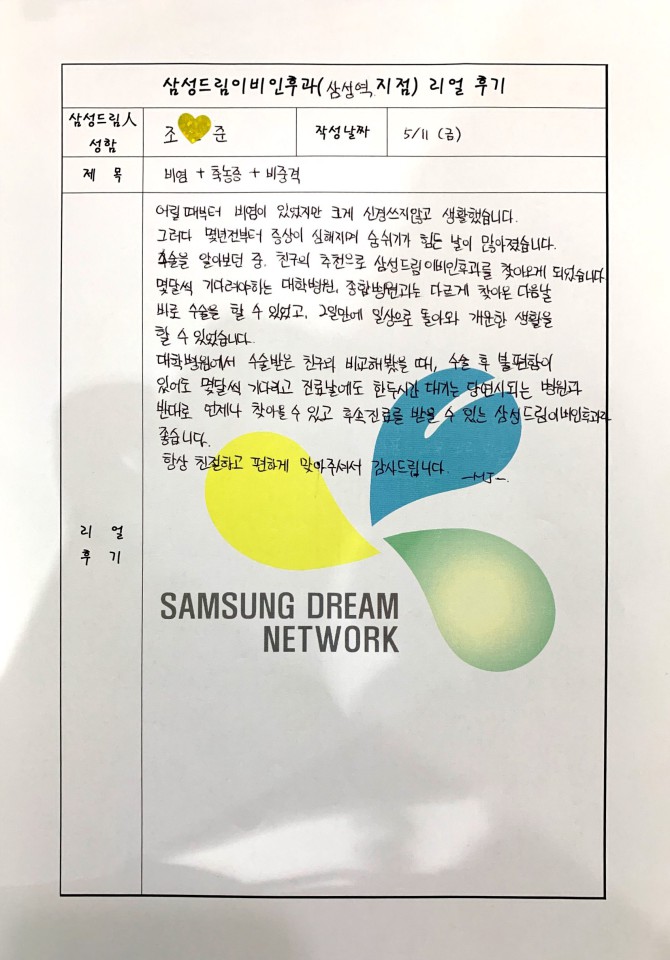 삼성드림이비인후과(삼성역 지점) 리얼 후기
삼성드림人 성함
조 준
작성날짜
5/11 (금)
제 목
비염 + 축농증 + 비중격
리 얼 후 기
어릴 때부터 비염이 있었지만 크게 신경쓰지않고 생활했습니다.
그러다 몇년전부터 증상이 심해지며 숨쉬기가 힘든 날이 많아졌습니다.
수술을 알아보던 중, 친구의 추천으로 삼성드림이비인후과를 찾아오게 되었습니다
몇달씩 기다려야하는 대학병원, 종합병원과는 다르게 찾아온 다음날
바로 수술을 할 수 있었고, 2일만에 일상으로 돌아와 개운한 생활을
할 수 있었습니다.
대학병원에서 수술받은 친구와 비교해봤을 때, 수술 후 불편함이
있어도 몇달씩 기다리고 진료날에도 한두시간 대기는 당연시되는 병원과
반대로 언제나 찾아올 수 있고 후속진료를 받을 수 있는 삼성드림이비인후과라
좋습니다.
항상 친절하고 편하게 맞아주셔서 감사드립니다. -MJ-
SAMSUNG DREAM
NETWORK